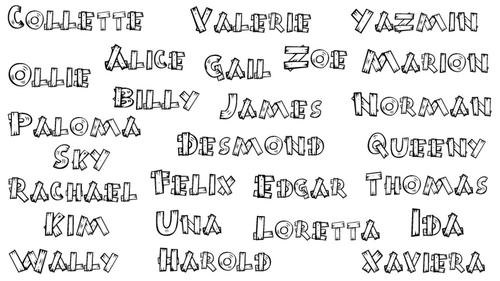 Collette Valerie Yazmin
Ollie Alice Gail Zoe Marion
Billy James Norman
Paloma Desmond Queeny
Sky
Rachael Felix Edgar Thomas
Kim Una Loretta Ida
Wally Harold Xaviera